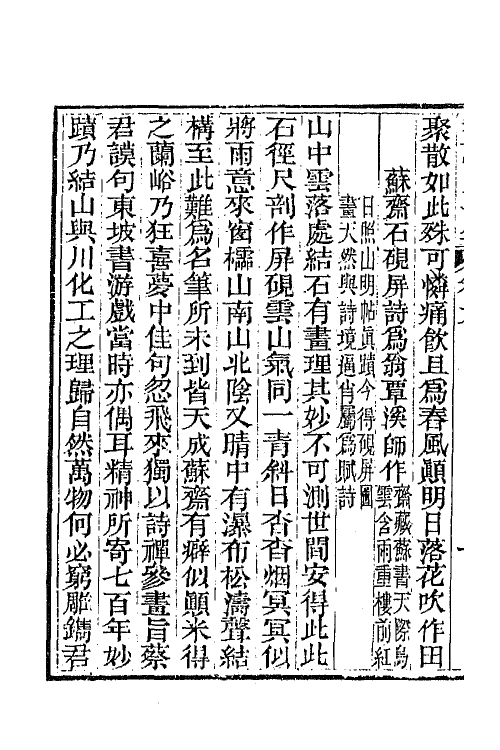 聚散如此殊可憐痛飲且爲春風顛明日落花吹作田
蘇齋石硯屏詩爲翁覃溪師作齋藏蘇書天際烏
雲含雨重樓前紅
日照山明帖眞蹟今得硯屏圖
畫天然與詩境逼肖屬爲賦詩
山中雲落處結石有畫理其妙不可測世間安得此此
石徑尺剖作屏硯雲山氣同一青斜日杳杳烟冥冥似
將雨意來窗櫺山南山北陰又晴中有瀑布松濤聲結
構至此難爲名筆所未到皆天成蘇齋有癖似顛米得
之蘭峪乃狂喜夢中佳句忽飛來獨以詩禪參畫旨蔡
君謨句東坡書游戲當時亦偶耳精神所寄七百年妙
蹟乃結山與川化工之理歸自然萬物何必窮雕鐫君